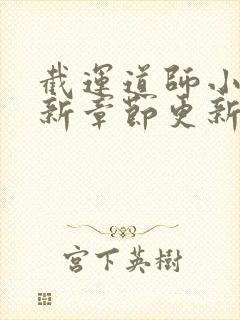 截運道師小
新章節更新
宮下英樹